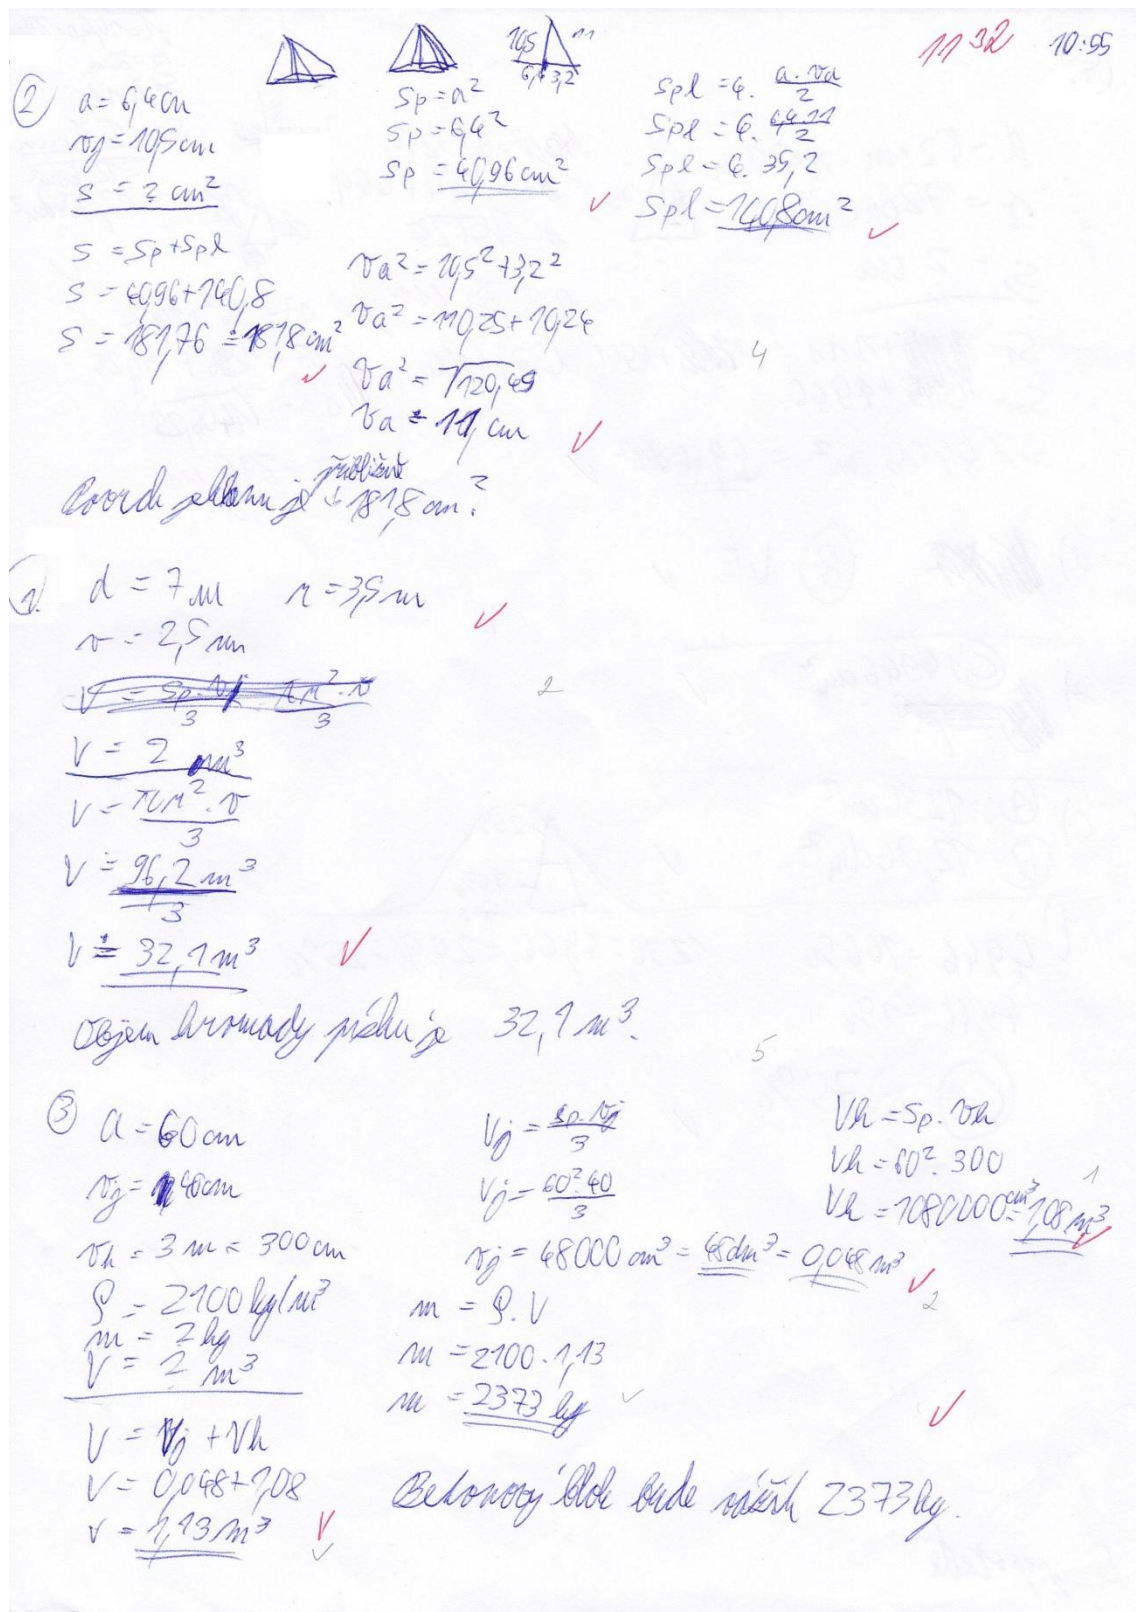 10,5 11
6,4 3,2
11 32 10:55
② a = 6,4 cm
vj = 10,5 cm
S = ? cm²
S = Sp + Spl
S = 40,96 + 140,8
S = 181,76 ≐ 181,8 cm²
Sp = a²
Sp = 6,4²
Sp = 40,96 cm²
Spl = 4. a.va/2
Spl = 4. 6,4.11/2
Spl = 4. 35,2
Spl = 140,8 cm²
va² = 10,5² + 3,2²
va² = 110,25 + 10,24
va² = √120,49
va ≐ 11 cm
4
přibližně
Povrch jehlanu je 181,8 cm².
1. d = 7 m r = 3,5 m
v = 2,5 m
V = Sp.v/3 πr².v/3
2
V = ? m³
V = πr².v/3
V ≐ 96,2 m³/3
V ≐ 32,1 m³
Objem hromady písku je 32,1 m³.
5
③ a = 60 cm
vj = 40 cm
vh = 3 m = 300 cm
ρ = 2100 kg/m³
m = ? kg
V = ? m³
V = Vj + Vh
V = 0,048 + 1,08
V = 1,13 m³
Vj = Sp.vj/3
Vj = 60².40/3
Vj = 48000 cm³ = 48 dm³ = 0,048 m³
2
m = ρ.V
m = 2100.1,13
m = 2373 kg
Vh = Sp.vh
Vh = 60².300
1
Vh = 1080000 cm³ = 1,08 m³
Betonový blok bude vážit 2373 kg.